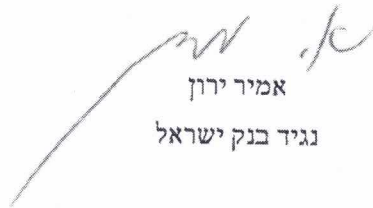 אמיר ירון
נגיד בנק ישראל